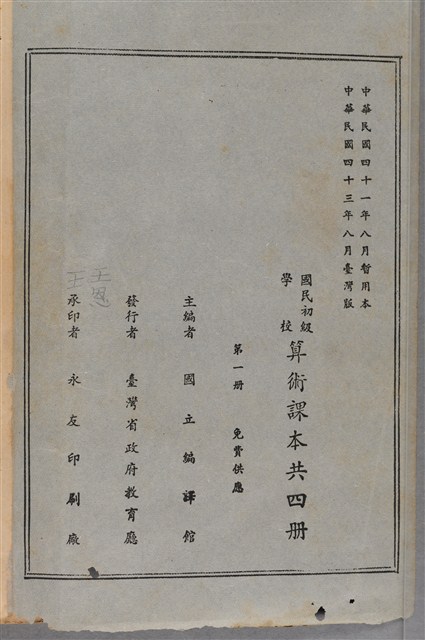 中華民國四十一年八月暫用本
中華民國四十三年八月臺灣版
國民學校初級算術課本共四册
第一册 免費供應
主編者 國立編譯館
發行者 臺灣省政府教育廳
承印者 永友印刷廠
王恩
王